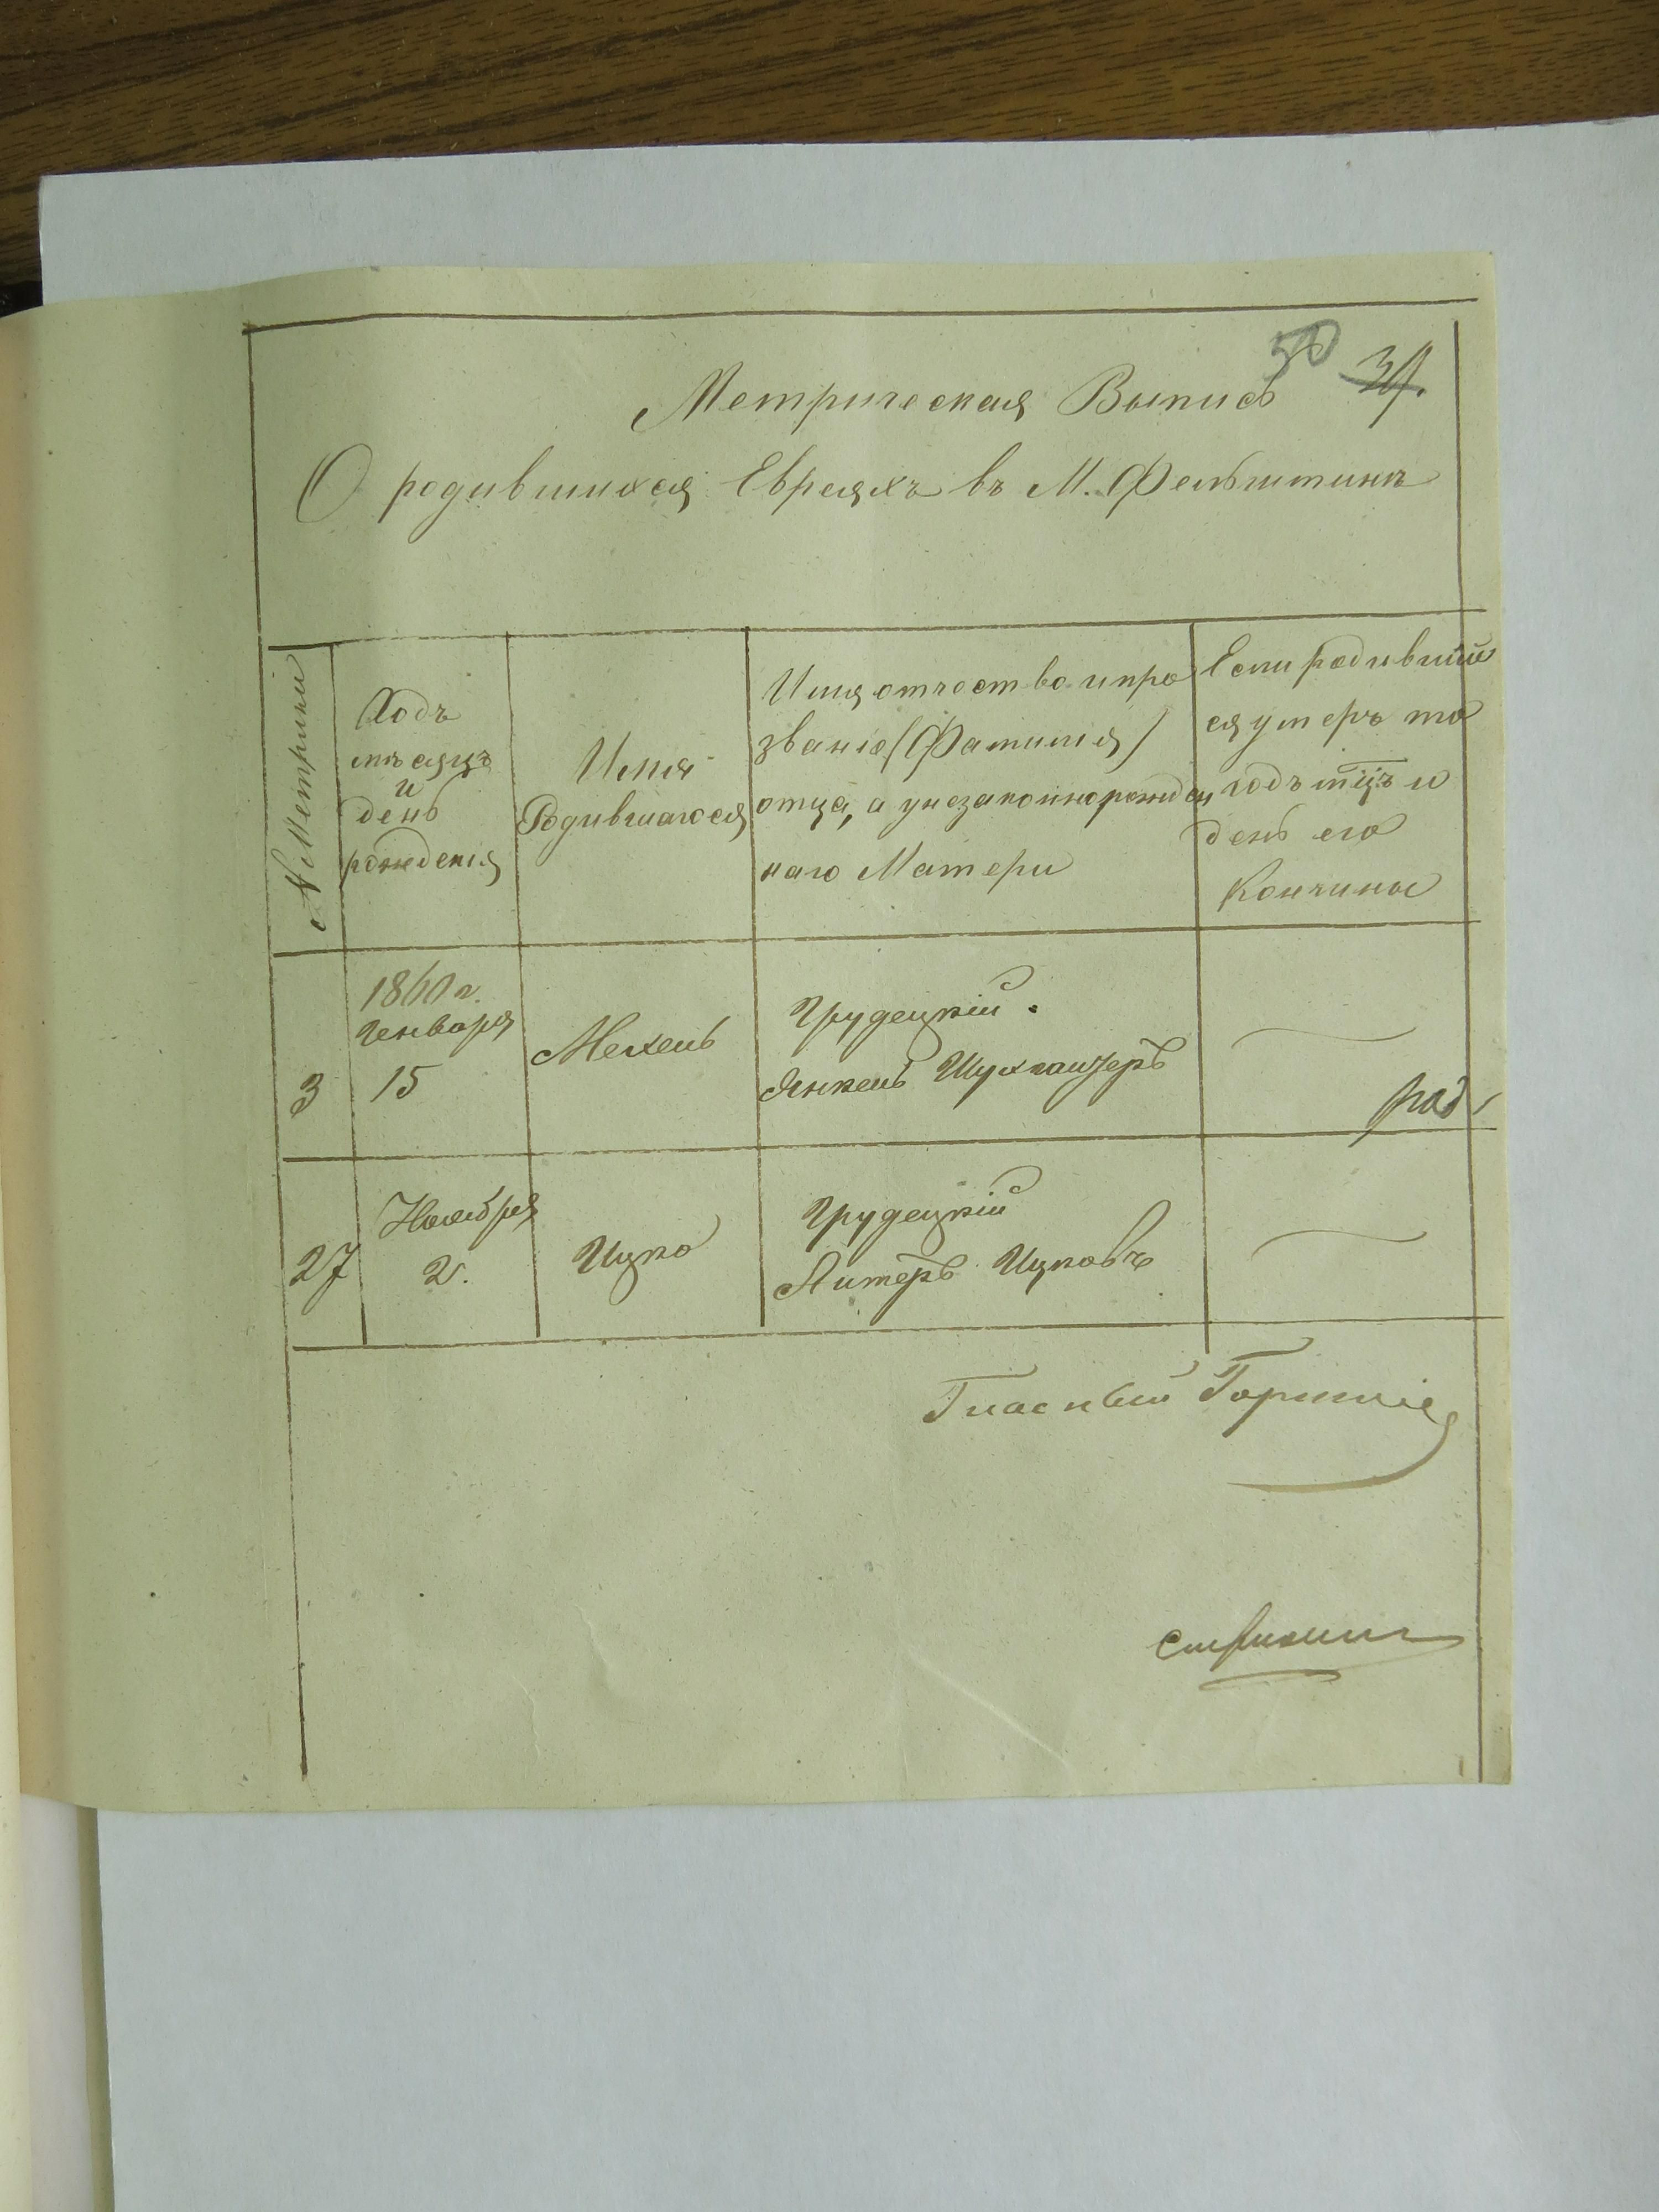 50 34.
Метрическая Выпись
О родившихся Евреяхъ въ М. Фельштинѣ
№ Метрики
Годъ
мѣсяцъ
и
день
рожденія
Имя
Родившагося
Имя отчество и про
званіе (Фамилія)
отца, а у незаконнорожден
наго Матери
Если родившій
ся умеръ то
годъ мцъ и
день его
Кончины
3
1860 г.
Генваря
15
Мехель
Грудецкій.
Янкель
27
Ноября
2.
Ицко
Грудецкій
Ицковъ
Гласный